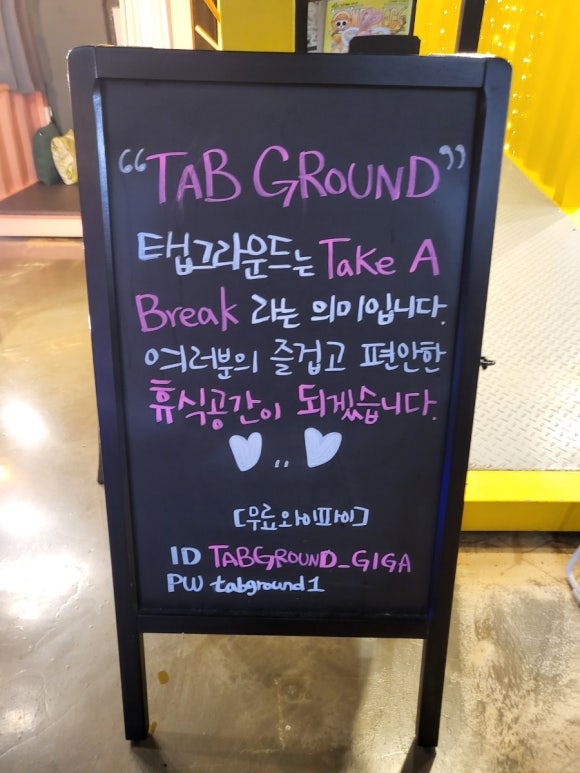 “TAB GROUND”
탭그라운드는 Take A
Break 라는 의미입니다.
여러분의 즐겁고 편안한
휴식공간이 되겠습니다.
[무료와이파이]
ID TABGROUND_GIGA
PW tabground1